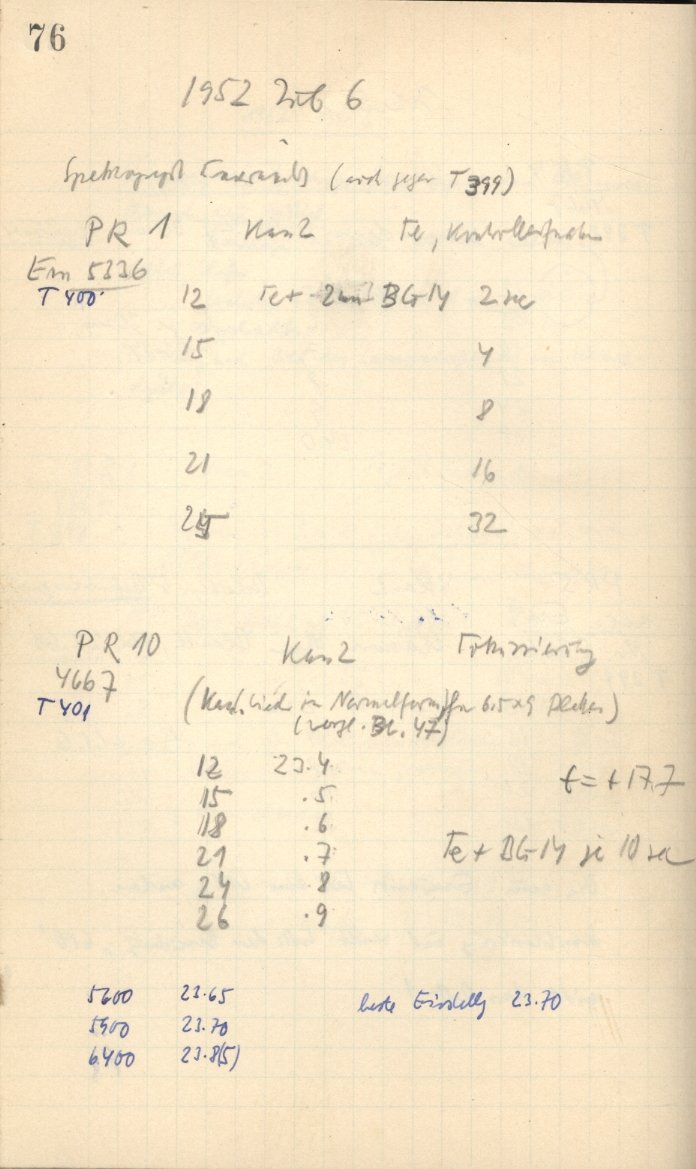 76
1952 Feb 6
Spektrograph (auch gegen T399)
PR 1 Kam 2 Fe, Kontrollaufnahme
Em 5336
T 400 12 Fe + BG 14 2 sec
15 4
18 8
21 16
24 32
PR 10 Kam 2 Fokussierung
4667
T 401 (Kass. in Normalform für 6.5x9 Platten)
(vergl. Bl. 47)
12 23.4
t = +17.7
15 .5
18 .6
21 .7 Fe + BG 14 je 10 sec
24 .8
26 .9
5600 23.65 beste Einstellg 23.70
5900 23.70
6400 23.8(5)